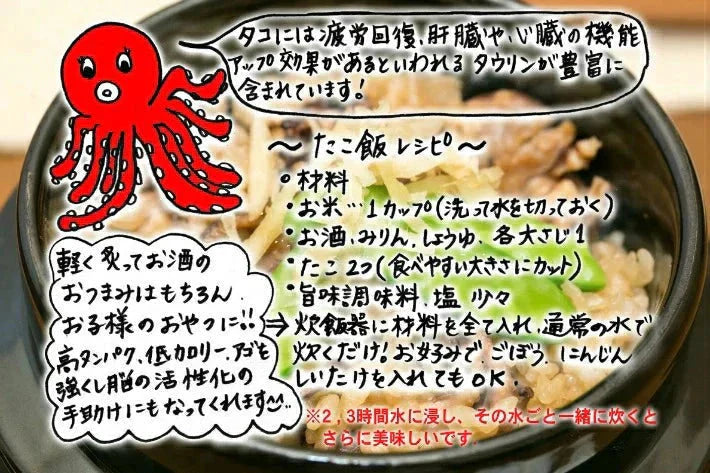 タコには疲労回復、肝臓や、心臓の機能
アップ効果があるといわれるタウリンが豊富に
含まれています!
～たこ飯レシピ～
・材料
・お米…1カップ(洗って水を切っておく)
・お酒、みりん、しょうゆ、各大さじ1
・たこ2つ(食べやすい大きさにカット)
・旨味調味料、塩 少々
⇒炊飯器に材料を全て入れ、通常の水で
炊くだけ!お好みで、ごぼう、にんじん
しいたけを入れてもOK.
※2,3時間水に浸し、その水ごと一緒に炊くと
さらに美味しいです。
軽く炙ってお酒の
おつまみはもちろん、
お子様のおやつに!!
高タンパク、低カロリー、アゴも
強くし脳の活性化の
手助けにもなってくれます